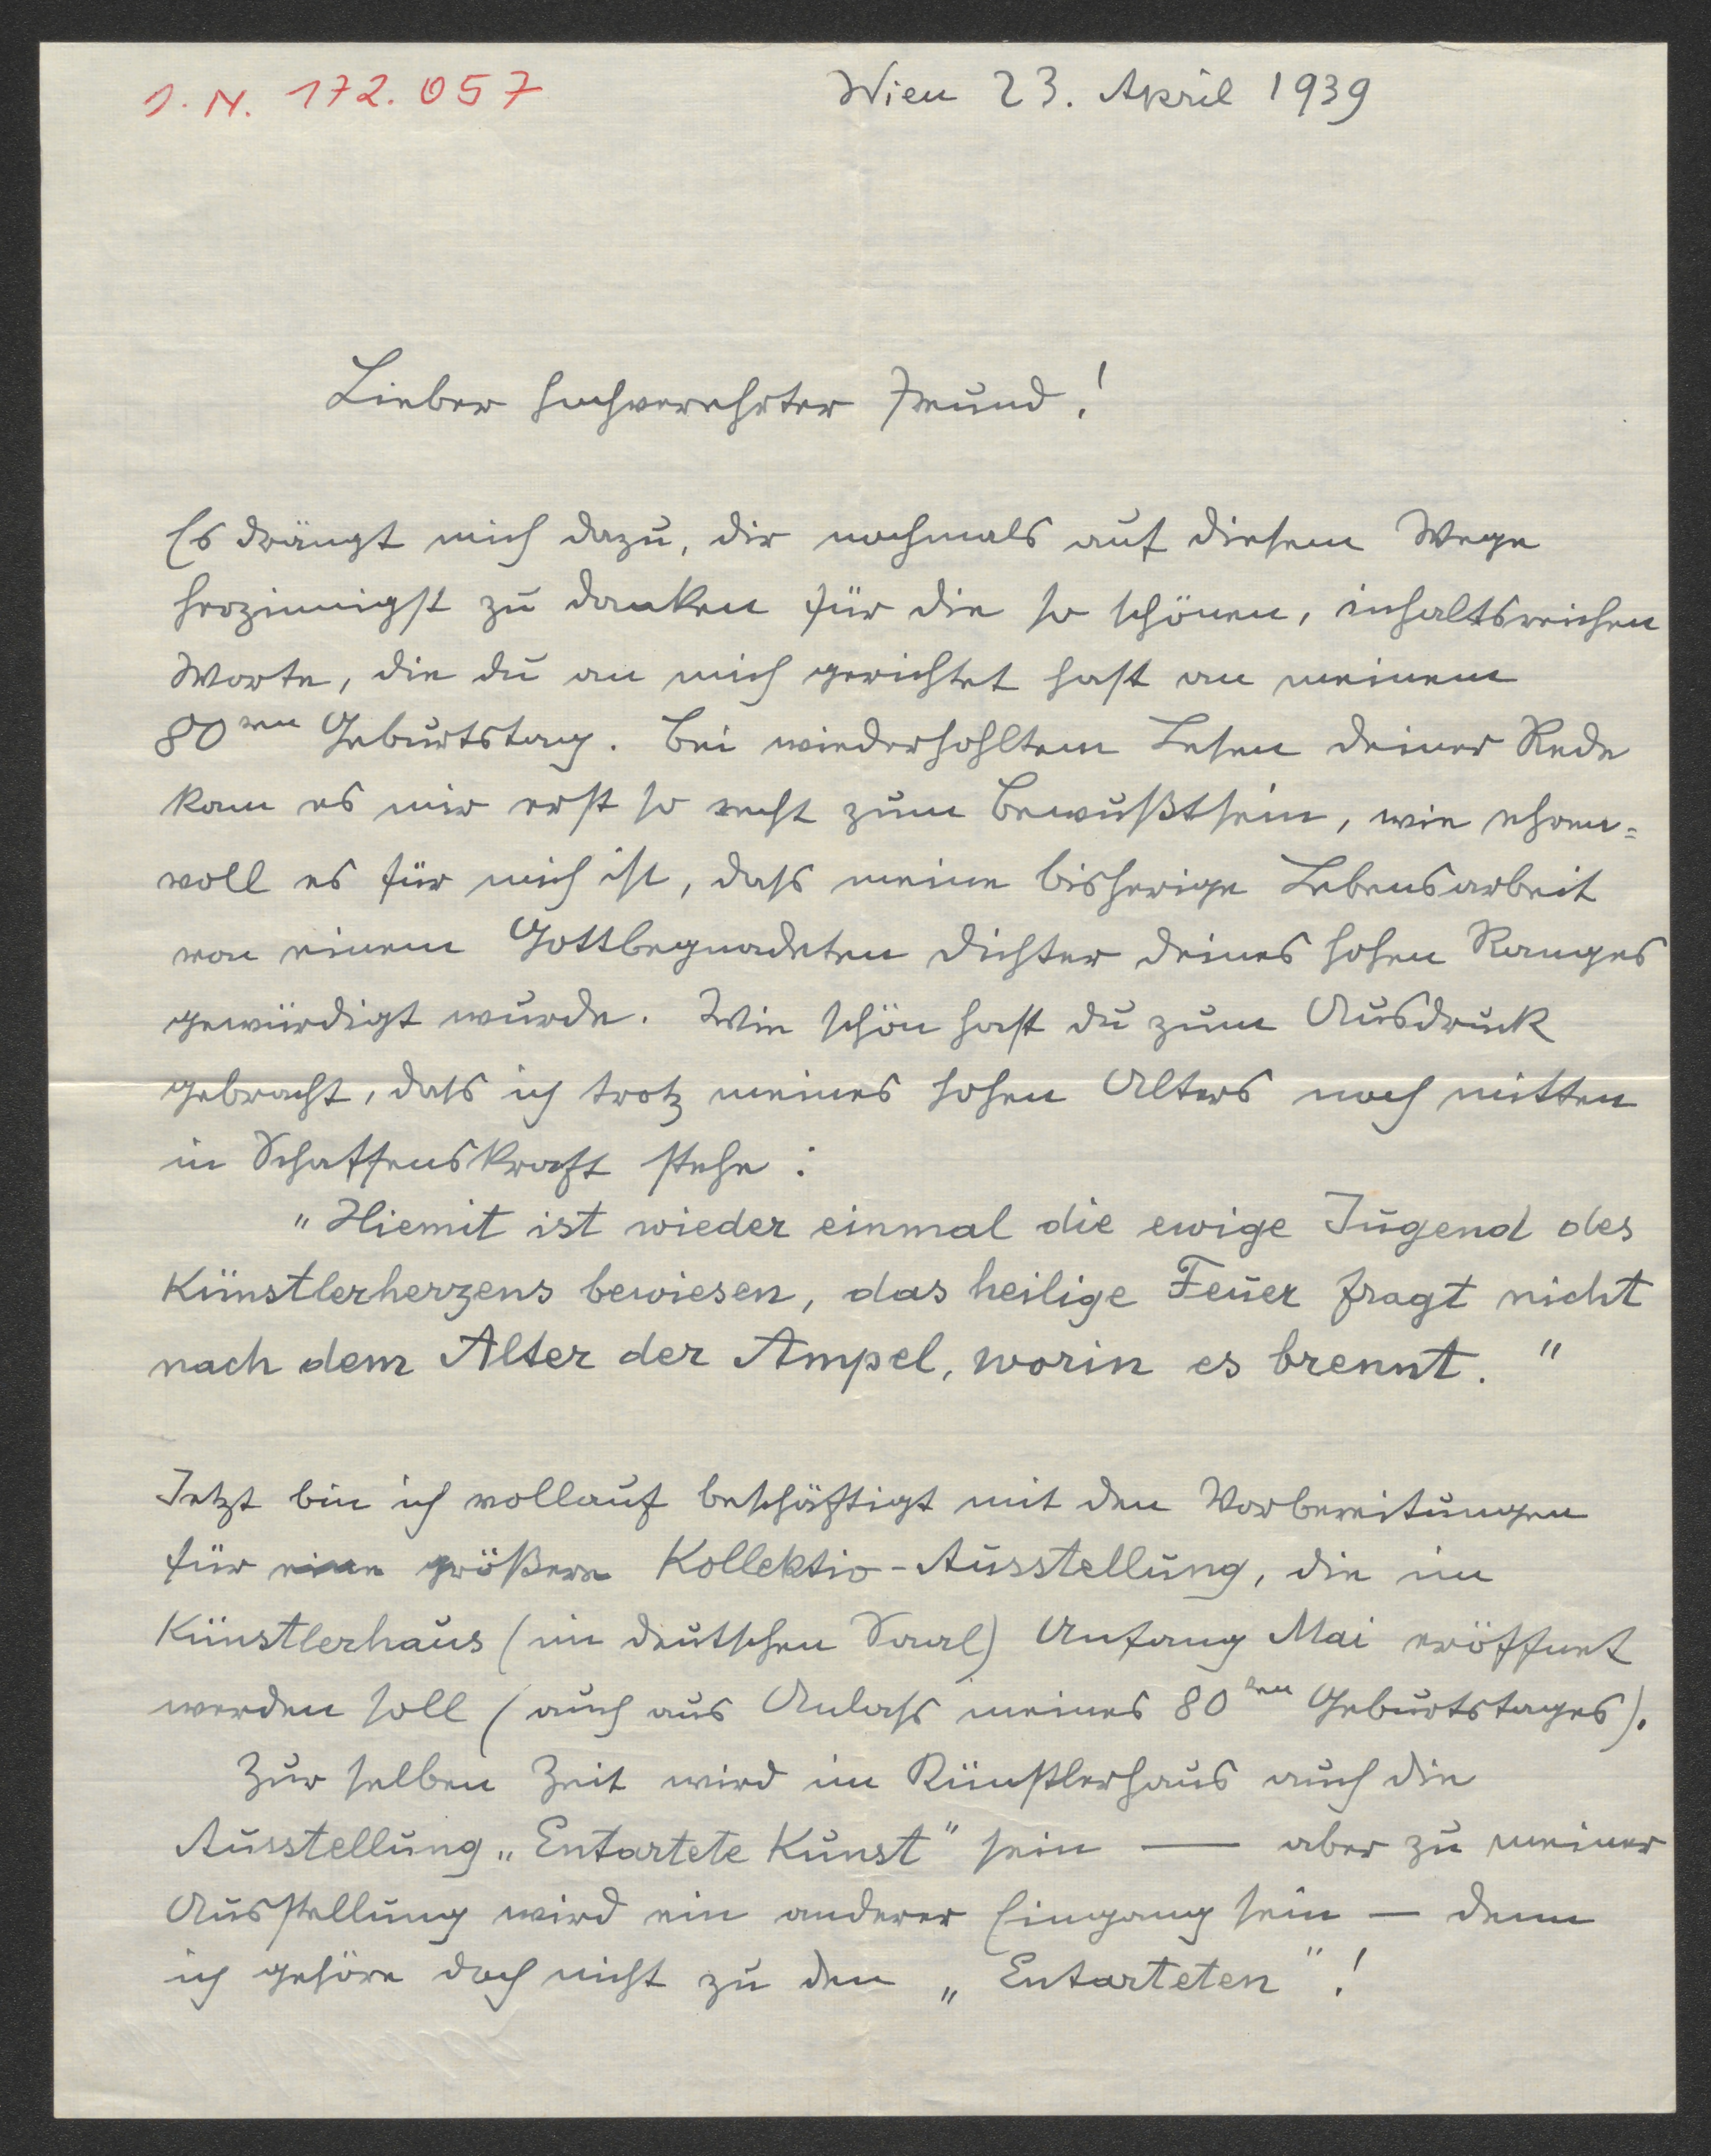 J. N. 172.057
Wien 23. April 1939
Lieber hochverehrter Freund!
Es drängt mich dazu, dir nochmals auf diesem Wege
herzinnigst zu danken für die so schönen, inhaltsreichen
Worte, die du an mich gerichtet hast an meinem
80ten Geburtstag. Bei wiederhohltem Lesen deiner Rede
kam es mir erst so recht zum Bewußtsein, wie ehren=
voll es für mich ist, dass meine bisherige Lebensarbeit
von einem Gottbegnadeten Dichter deines hohen Ranges
gewürdigt wurde. Wie schön hast du zum Ausdruck
gebracht, dass ich trotz meines hohen Alters noch mitten
in Schaffenskraft stehe:
„Hiemit ist wieder einmal die ewige Jugend des
Künstlerherzens bewiesen, das heilige Feuer fragt nicht
nach dem Alter der Ampel, worin es brennt."
Jetzt bin ich vollauf beschäftigt mit den Vorbereitungen
für eine größere Kollektiv-Ausstellung, die im
Künstlerhaus (im deutschen Saal) Anfang Mai eröffnet
werden soll (auch aus Anlass meines 80ten Geburtstages).
Zur selben Zeit wird im Künstlerhaus auch die
Ausstellung „Entartete Kunst" sein — aber zu meiner
Ausstellung wird ein anderer Eingang sein — denn
ich gehöre doch nicht zu den „Entarteten"!